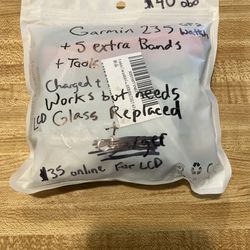 $40 obo
Garmin 235 GPS
Watch
+ 5 extra Bands
+ Tools
Charged +
Works but needs
LCD Glass Replaced
+
$35 online For LCD